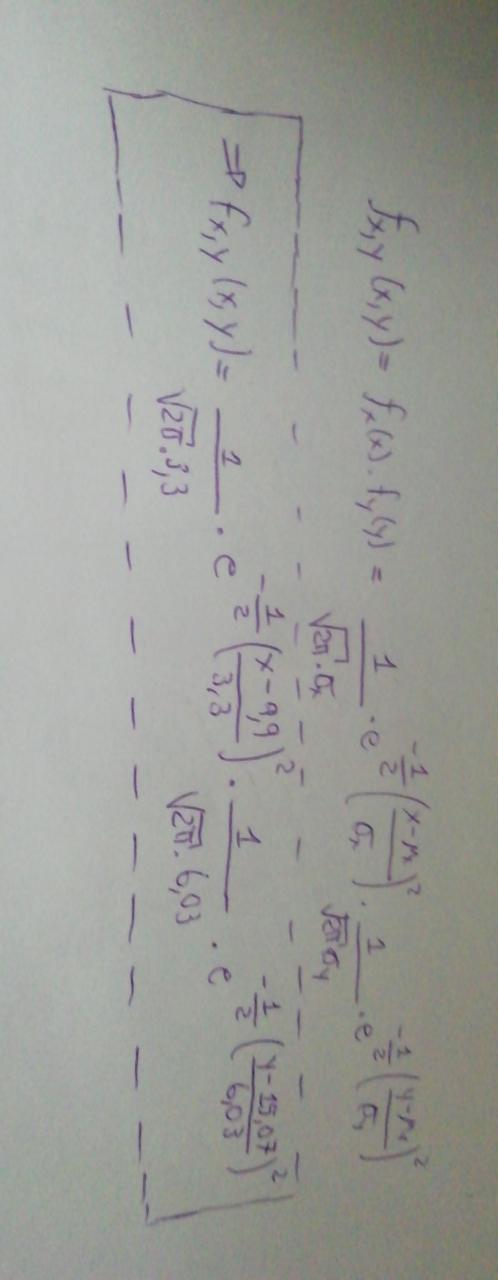 f_{x,y}(x,y) = f_x(x) . f_y(y) = \frac{1}{\sqrt{2\pi}.σ_x} · e^{-\frac{1}{2}\left(\frac{x-μ_x}{σ_x}\right)^2} . \frac{1}{\sqrt{2\pi}σ_y} · e^{-\frac{1}{2}\left(\frac{y-μ_x}{σ_y}\right)^2}
⇒ f_{x,y}(x,y) = \frac{1}{\sqrt{2\pi}.3,3} · e^{-\frac{1}{2}\left(\frac{x-9,9}{3,3}\right)^2} · \frac{1}{\sqrt{2\pi}.6,03} · e^{-\frac{1}{2}\left(\frac{y-15,07}{6,03}\right)^2}